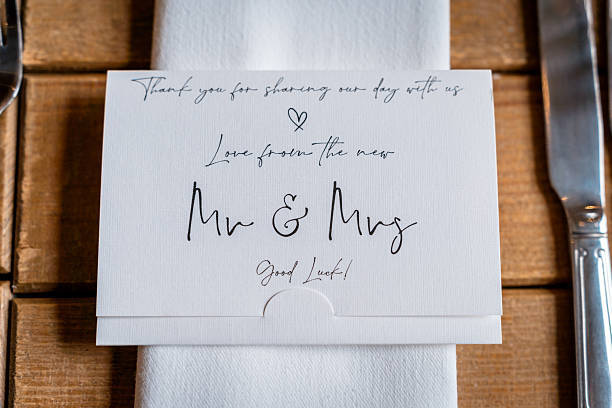 Thank you for sharing our day with us
Love from the new
Mr & Mrs
Good Luck!